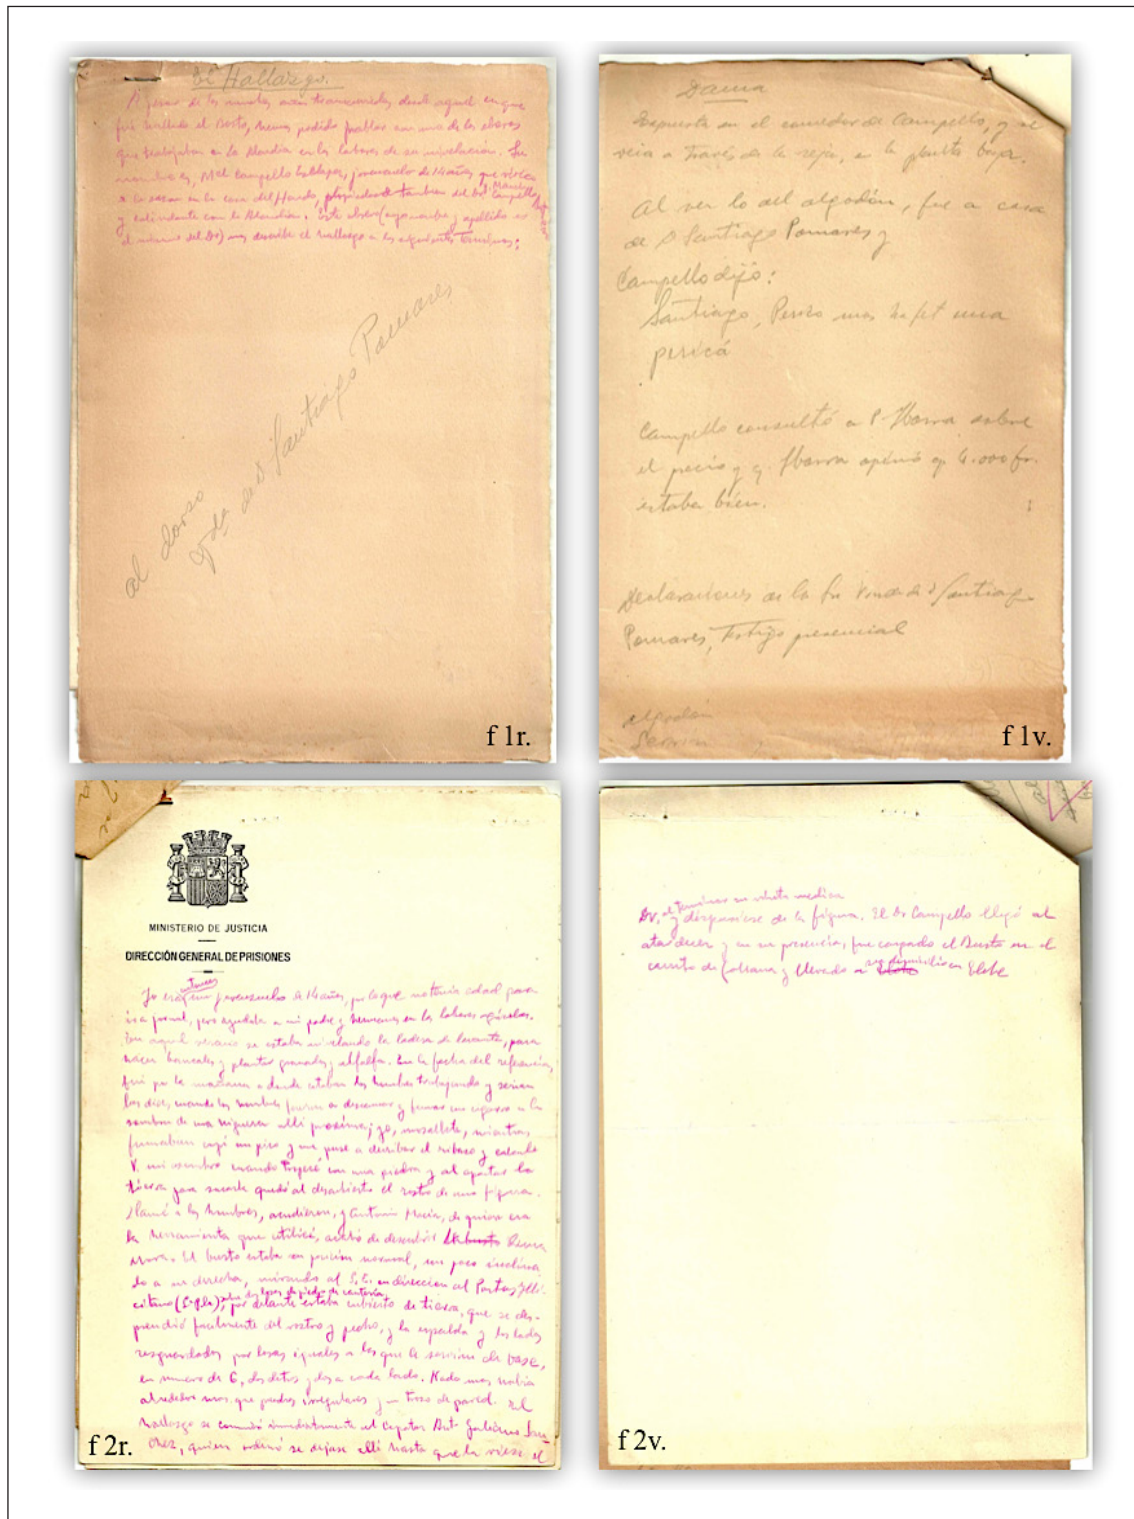 El Hallazgo.
A pesar de los muchos años transcurridos desde aquel en que
fué hallado el Busto, hemos podido hablar con uno de los obreros
que trabajaban en la Alcudia en las labores de su nivelación. Su
nombre es, Mel Campello Esclapez, jovenzuelo de 14 años que vivía
a la sazon en la casa del Hondo, propiedad tambien del Dr. D. Manuel Campello
y colindante con la Alcudia. Este obrero (cuyo nombre y apellido es
el mismo del Dr) nos describe el hallazgo en los siguientes términos:
al dorso
Vda de D Santiago Pomares
f 1r.
Dama
Expuesta en el comedor de Campello, y se
veia a través de la reja, en la planta baja.
Al ver lo del algodón, fue a casa
de D Santiago Pomares y
Campello dijo:
Santiago, Perico mos ha fet una
pericá
Campello consultó a P. Ibarra sobre
el precio y q. Ibarra opinó q. 4.000 fr.
estaba bien.
Declaraciones de la Sra Viuda de D Santiago
Pomares, Testigo presencial
algodón
f 1v.
MINISTERIO DE JUSTICIA
DIRECCIÓN GENERAL DE PRISIONES
Yo era entonces un jovenzuelo de 14 años, por lo que no tenia edad para
ir a jornal, pero ayudaba a mi padre y hermanos en las labores agrícolas.
En aquel verano se estaba nivelando la ladera de levante, para
hacer bancales y plantar granados y alfalfa. En la fecha del referencia,
fui por la mañana a donde estaban los hombres trabajando y serian
las diez, cuando los hombres fueron a descansar y fumar un cigarro a la
sombra de una higuera alli proxima; yo, mientras,
fumaban cogí un pico y me puse a derribar el ribazo y calcule
V. mi asombro cuando tropecé con una piedra y al apartar la
tierra para sacarla quedó al descubierto el rostro de una figura.
Llamé a los hombres, acudieron, y Antonio Maciá, de quien era
la herramienta que utilicé, acabó de descubrir el busto Reina
mora. El busto estaba en posición normal, un poco inclina
do a su derecha, mirando al S.E. en dirección al Portus Illi-
citano (Sta Pola), sobre dos losas de piedra de cantería, por delante estaba cubierto de tierra, que se des-
prendió facilmente del rostro y pecho, y la espalda y los lados
resguardados por losas iguales a las que le servian de base,
en numero de 6, dos detrás y dos a cada lado. Nada mas habia
alrededor mas que piedras irregulares y un trozo de pared. El
hallazgo se comunicó inmediatamente al Capataz Ant. Galiano Sán
chez, quien ordenó se dejase alli hasta que la viese el
f 2r.
Dr, al terminar su visita medica
y dispusiese de la figura. El Dr Campello llegó al
atardecer y en su presencia, fue cargado el Busto en el
carrito de y llevado a su domicilio en Elche
f 2v.